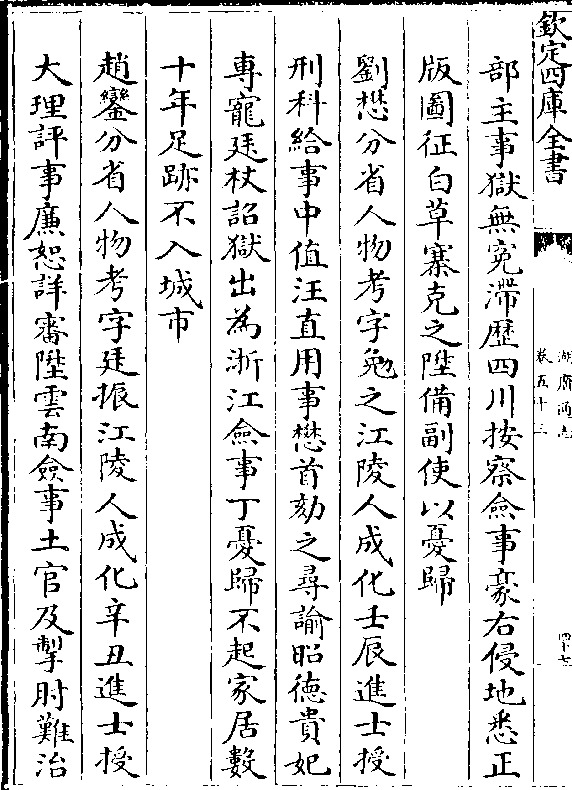 欽定四庫全書
湖廣通志
卷五十三
部主事獄無寃滯歷四川按察僉事豪右侵地悉正
版圖征白草寨克之陞備副使以憂歸
劉懋分省人物考字勉之江陵人成化壬辰進士授
刑科給事中值汪直用事懋首劾之尋諭昭徳貴妃
專寵廷杖詔獄出為浙江僉事丁憂歸不起家居數
十年足跡不入城市
趙鑾分省人物考字廷振江陵人成化辛丑進士授
大理評事廉恕詳審陞雲南僉事土官及掣肘難治